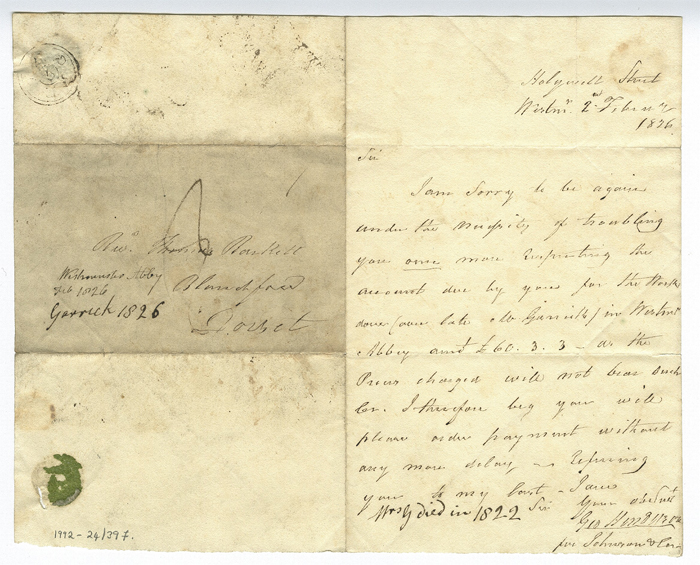 Revd. Thomas Rackett
Blandford
Dorset
Westminster Abbey
Feb 1826
Garrick 1826
1992-24/397.
Holywell Street
Westmr. 2nd February
1826
Sir
I am Sorry to be again
under the necessity of troubling
you once more respecting the
account due by you for the Work
done (over late Mr Garrick) in Westmr
Abbey amt £60.3.3 - as the
Prices charged will not bear such
I therefore beg you will
please order payment without
any more delay -
your to my last - I am
Sir Your obedt Servt
Mrs G died in 1822
Geo
for Johnson & Co